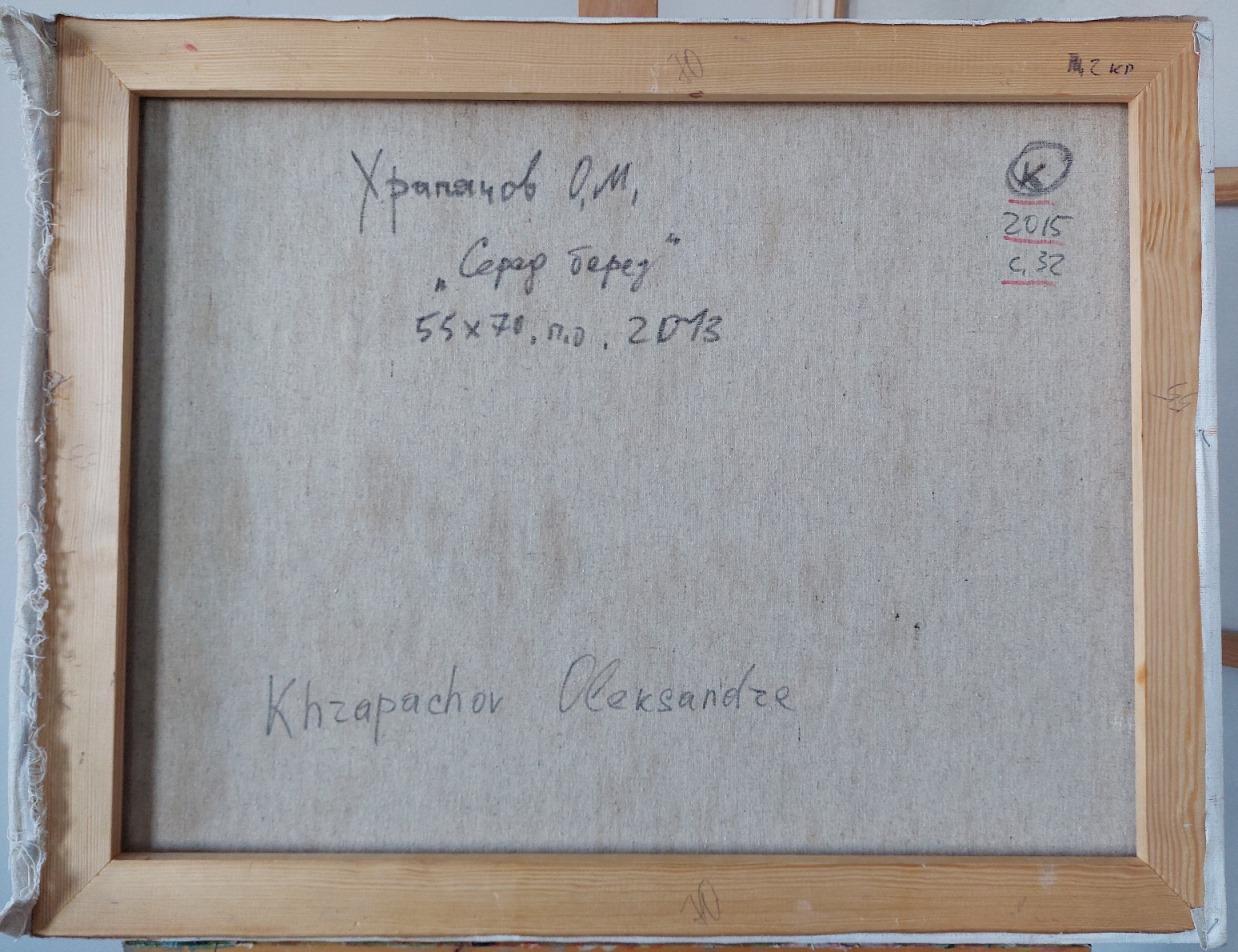 70
2 кр
Храпачов О.М.
„Серед берез"
55х70. п.о. 2013
К
2015
с. 32
55
55
Khrapachov Oleksandre
70